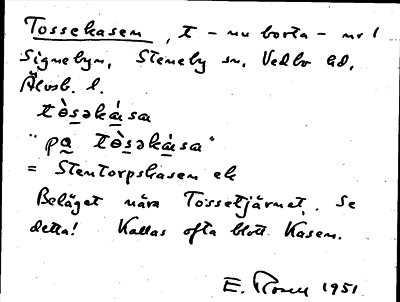 Tossekasen, t – nu borta – nr 1
Signebyn, Steneby sn, Vedbo hd,
Älvsb. l.
tὸsəkása
"pa tὸsəkása"
= Stentorpskasen ek
Beläget nära Tossetjärnet. Se
detta! Kallas ofta blott Kasen.
E. Rosell 1951